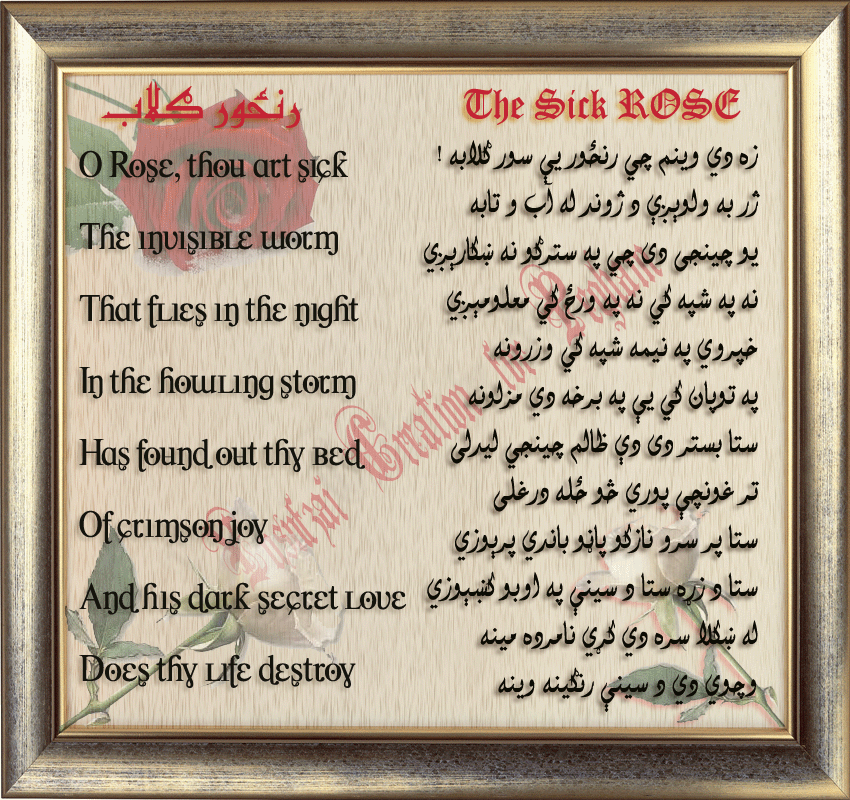 رنځور ګلاب
O Rose, thou art sick
The invisible worm
That flies in the night
In the howling storm
Has found out thy bed
Of crimson joy
And his dark secret love
Does thy life destroy
The Sick ROSE
زه دې وينم چې رنځور يې سور ګلابه !
ژر به ولوېږې د ژوند له آب و تابه
يو چينجی دی چې په سترګو نه ښکارېږي
نه په شپه کې نه په ورځ کې معلومېږي
خپروي په نيمه شپه کې وزرونه
په توپان کې يې په برخه دي مزلونه
ستا بستر دی دې ظالم چينجي ليدلی
تر غونچې پورې څو ځله درغلی
ستا پر سرو نازکو پاڼو باندې پرېوزي
ستا د زړه ستا د سينې په اوبو کښېوزي
له ښکلا سره دې کړې نامرده مينه
وچوي دې د سينې رنګينه وينه
Creation for